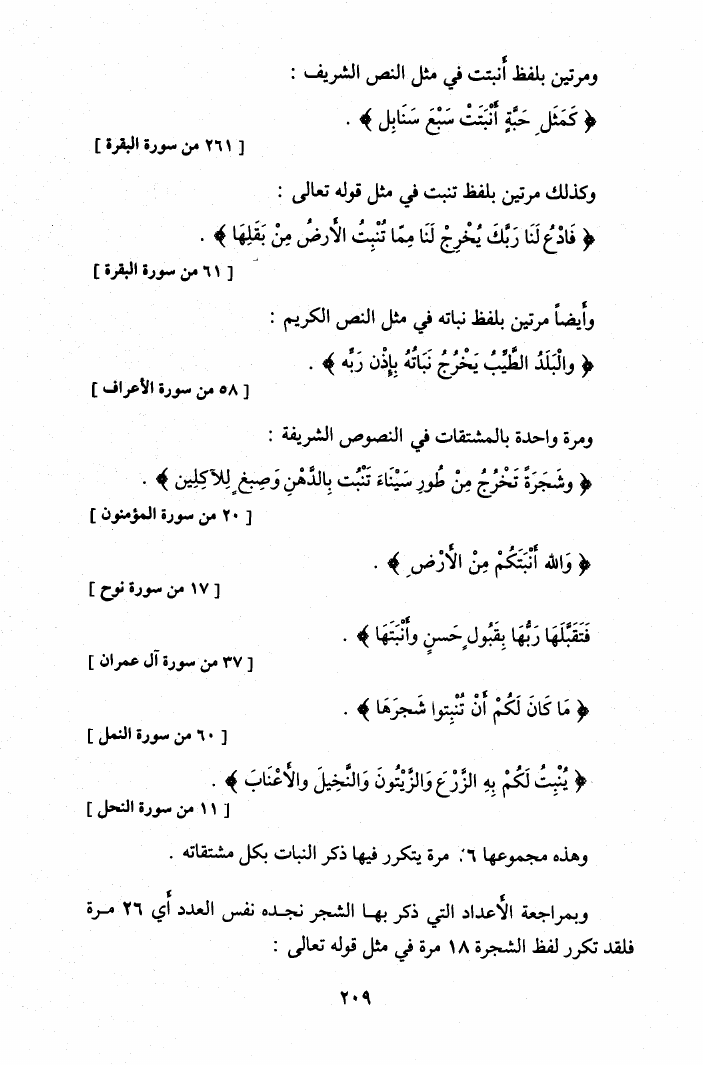 ومرتين بلفظ أنبتت في مثل النص الشريف :
﴿ كَمَثَلِ حَبَّةٍ أَنْبَتَتْ سَبْعَ سَنَابِل ﴾ .
[ ٢٦١ من سورة البقرة ]
وكذلك مرتين بلفظ تنبت في مثل قوله تعالى :
﴿ فَادْعُ لَنَا رَبَّكَ يُخْرِجْ لَنَا مِمّا تُنْبِتُ الأَرضُ مِنْ بَقَلِهَا ﴾ .
[ ٦١ من سورة البقرة ]
وأيضاً مرتين بلفظ نباته في مثل النص الكريم :
﴿ والْبَلَدُ الطَّيِّبُ يَخْرُجُ نَبَاتُهُ بِإِذْن رَبِّه ﴾ .
[ ٥٨ من سورة الأعراف ]
ومرة واحدة بالمشتقات في النصوص الشريفة :
﴿ وشَجَرَةً تَخْرُجُ مِنْ طُورِ سَيْنَاءَ تَنْبُت بِالدَّهْنِ وَصِبغٍ لِلآكِلِين ﴾ .
[ ٢٠ من سورة المؤمنون ]
﴿ وَالله أَنْبَتَكُمْ مِنَ الأَرْضِ ﴾ .
[ ١٧ من سورة نوح ]
فَتَقَبَّلَهَا رَبُّهَا بِقَبُولٍ حَسنٍ وأَنْبَتَهَا ﴾ .
[ ٣٧ من سورة آل عمران ]
﴿ مَا كَانَ لَكُمْ أَنْ تُنْبِتوا شَجرَهَا ﴾ .
[ ٦٠ من سورة النمل ]
﴿ يُنْبِتُ لَكُمْ بِهِ الزَّرْعَ وَالزَّيْتُونَ وَالنَّخِيلَ والأَعْنَابَ ﴾ .
[ ١١ من سورة النحل ]
وهذه مجموعها مرة يتكرر فيها ذكر النبات بكل مشتقاته .
وبمراجعة الأعداد التي ذكر بها الشجر نجده نفس العدد أي ٢٦ مرة
فلقد تكرر لفظ الشجرة ١٨ مرة في مثل قوله تعالى :
٢٠٩